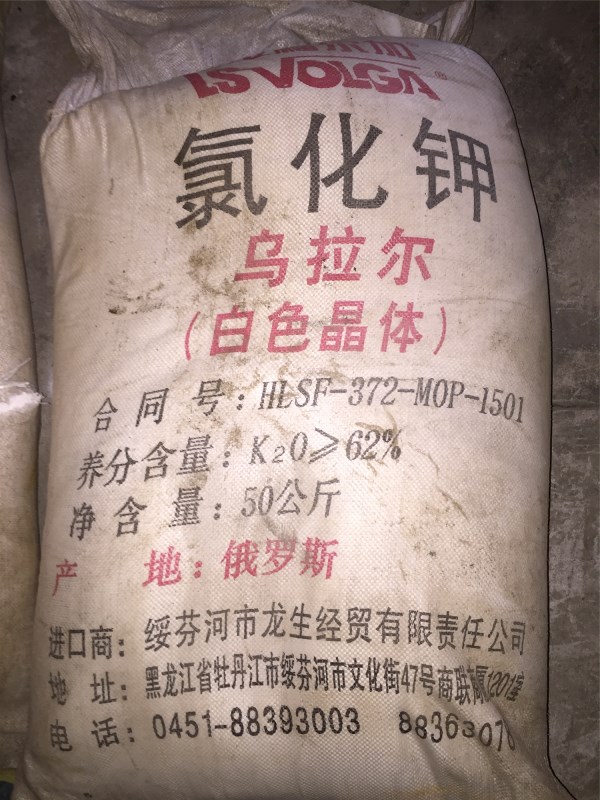 LSVOLGA
氯化钾
乌拉尔
(白色晶体)
合同号:HLSF-372-MOP-1501
养分含量:K₂O≥62%
净含量:50公斤
产地:俄罗斯
进口商:绥芬河市龙生经贸有限责任公司
地址:黑龙江省牡丹江市绥芬河市文化街47号商联 1201室
电话:0451-88393003